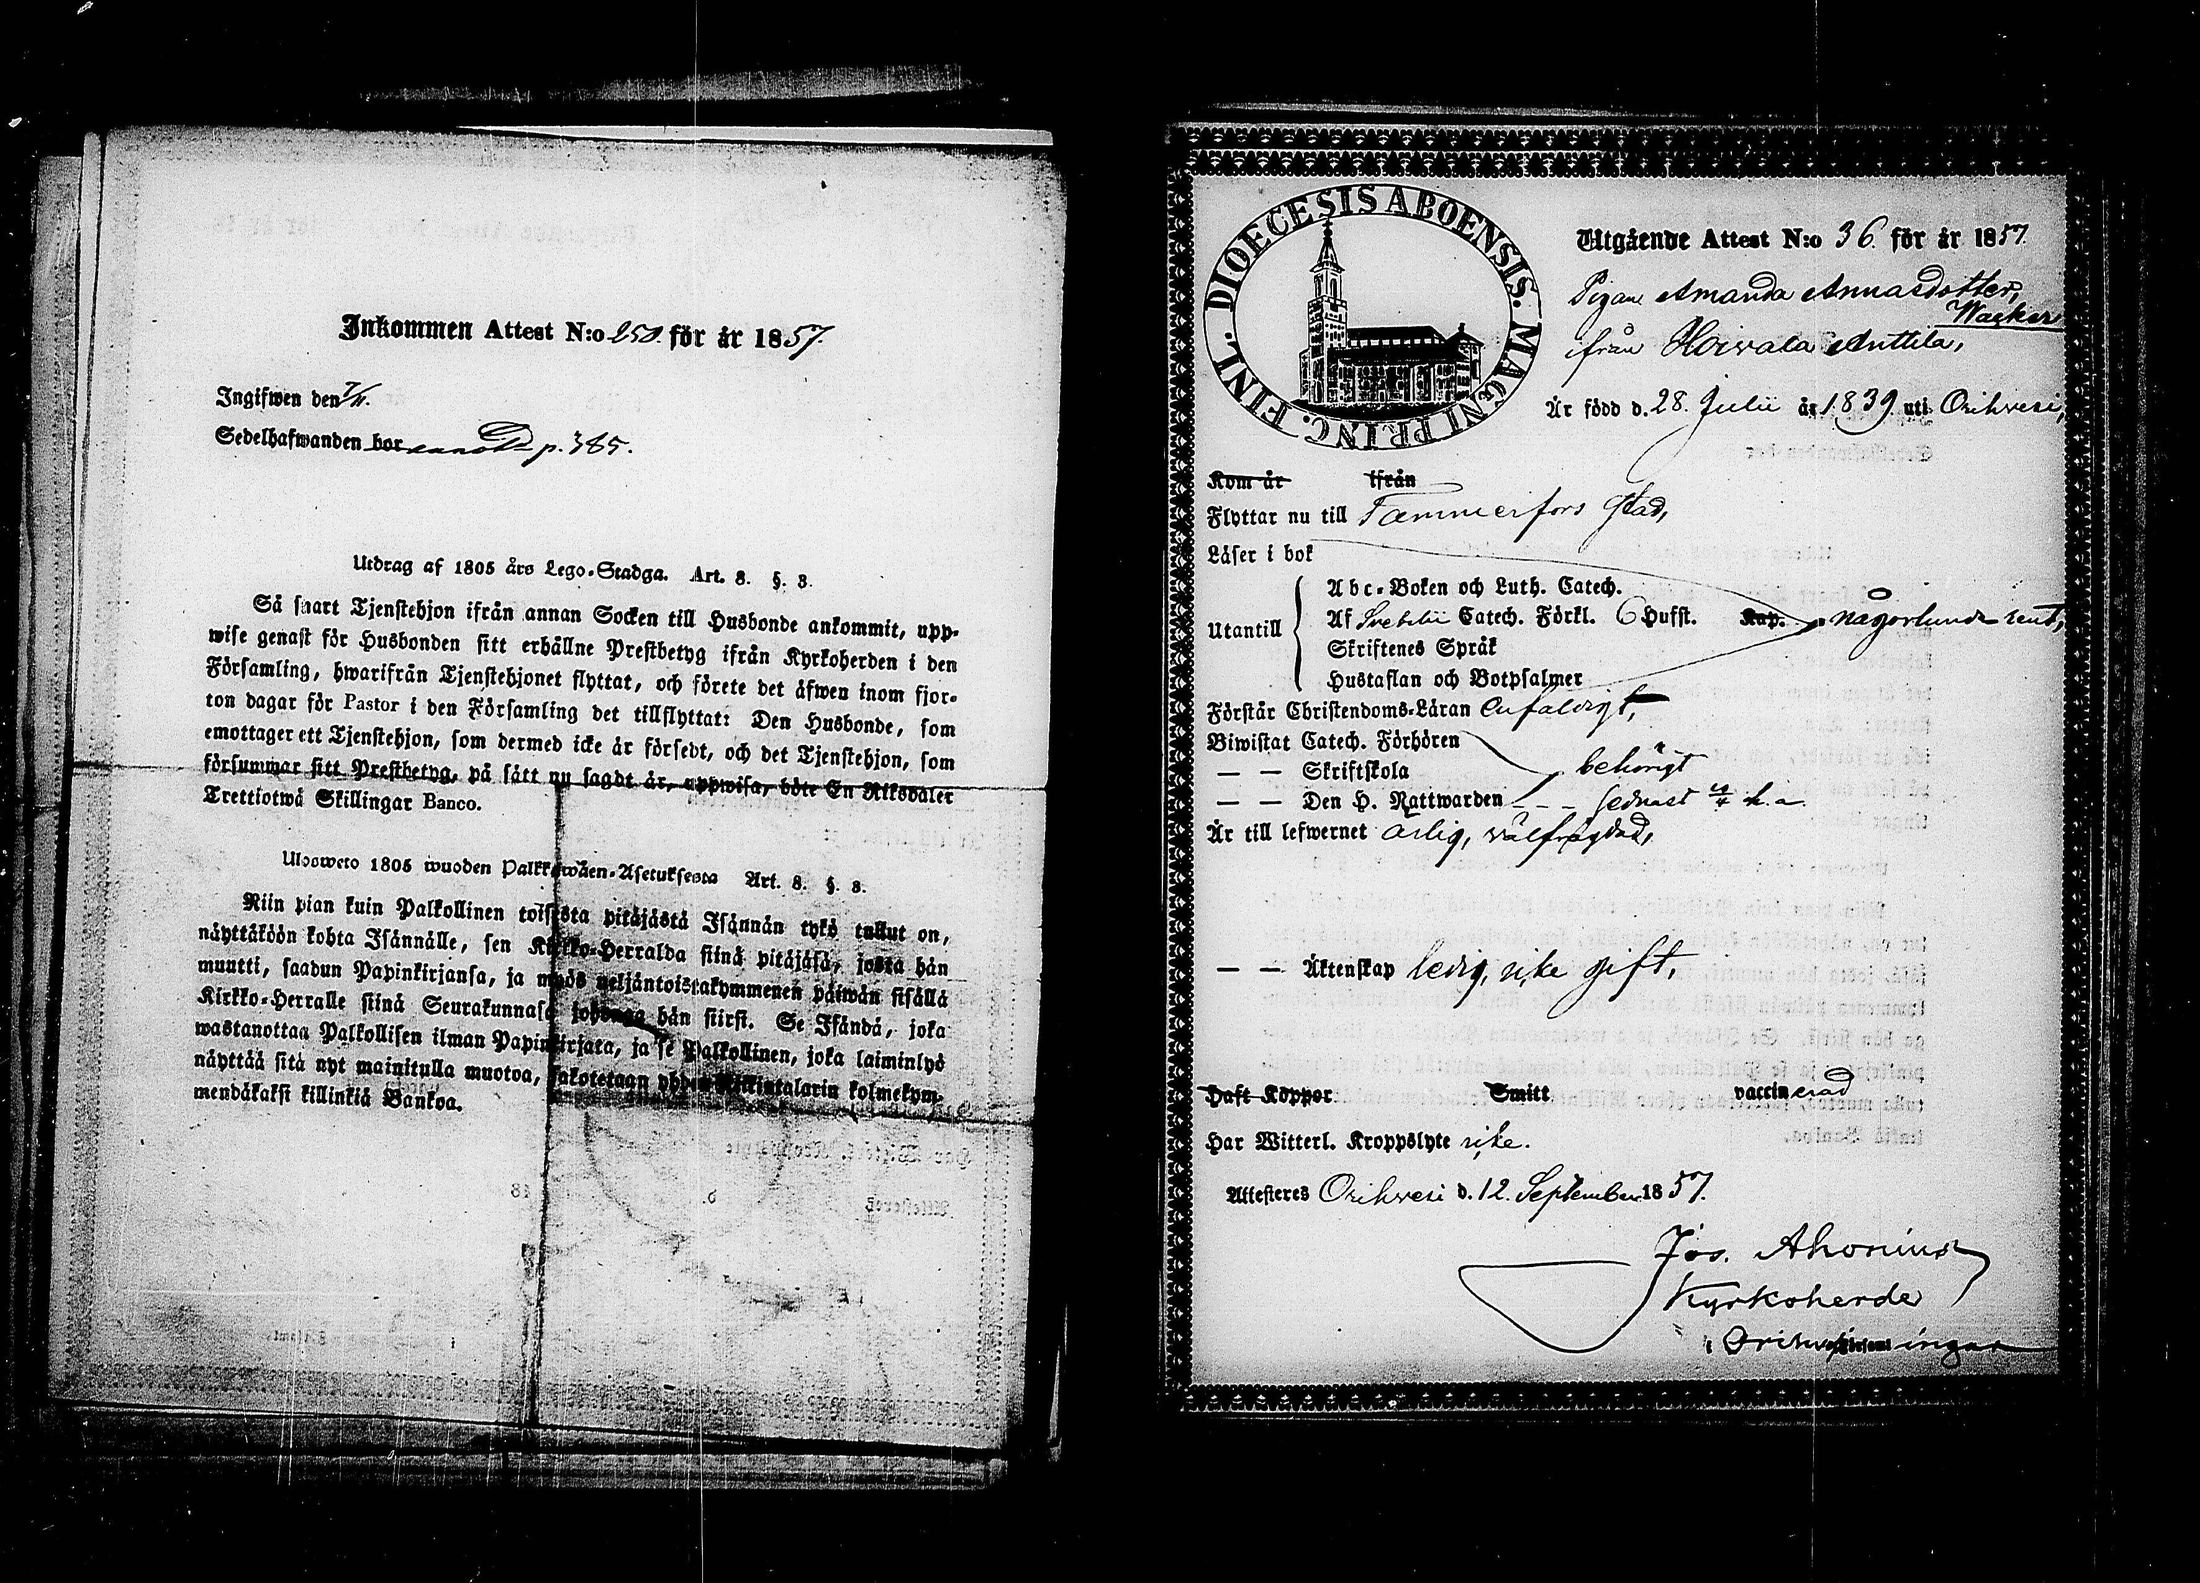 Inkommen Attest N:o 250. för år 1857.
Ingifwen den 7/11.
Sedelhafwanden bor p. 385.
Utdrag af 1805 års Lego-Stadga. Art. 8. §. 3.
Så snart Tjenstehjon ifrån annan Socken till Husbonde ankommit, upp-
wise genast för Husbonden sitt erhållne Prestbetyg ifrån Kyrkoherden i den
Församling, hwarifrån Tjenstehjonet flyttat, och förete det äfwen inom fjor-
ton dagar för Pastor i den Församling det tillflyttat: Den Husbonde, som
emottager ett Tjenstehjon, som dermed icke är försedt, och det Tjenstehjon, som
försummar sitt Prestbetyg, på sätt nu sagdt är, uppwisa, böte En Riksdaler
Trettiotwå Skillingar Banco.
Ulosweto 1805 wuoden Palkkawäen-Asetuksesta Art. 8. §. 3.
Niin pian kuin Palkollinen toisesta pitäjästä Isännän tykö tullut on,
näyttäköön kohta Isännälle, sen Kirkko-Herralda siinä pitäjäsä, josta hän
muutti, saadun Papinkirjansa, ja myös neljäntoistakymmenen päiwän sisällä
Kirkko-Herralle siinä Seurakunnasa johonga hän siirsi. Se Isändä, joka
wastanottaa Palkollisen ilman Papinkirjata, ja se Palkollinen, joka laiminlyö
näyttää sitä nyt mainitulla muotoa, sakotetaan yhden Riikintalarin kolmekym-
mendäkaksi killinkiä Bankoa.
DIOECESIS ABOENSIS. MAGNI PRINC. FINL.
Utgående Attest N:o 36. för år 1857.
Pigan Amanda Annasdotter,
Wacker
ifrån Hoivala Anttila,
Är född d. 28. Julii år 1839. uti Orihvesi,
Kom år ifrån
Flyttar nu till Tammerfors Stad,
Läser i bok
Abc-Boken och Luth. Catech.
Utantill Af Svebilii Catech. Förkl. 6 Hufst. Kap. någorlunda rent,
Skriftenes Språk
Hustaflan och Botpsalmer
Förstår Christendoms-Läran enfaldigt,
Biwistat Catech. Förhören
— — Skriftskola behörigt
— — Den H. Nattwarden - - - sednast h. a.
Är till lefwernet ärlig, välfrägdad,
— — Äktenskap ledig, icke gift,
Haft Koppor Smitt vaccinerad
Har Witterl. Kroppslyte icke.
Attesteres Orihvesi d. 12. September 1857.
Jos. Ahonius
Kyrkoherde
i Församlingar